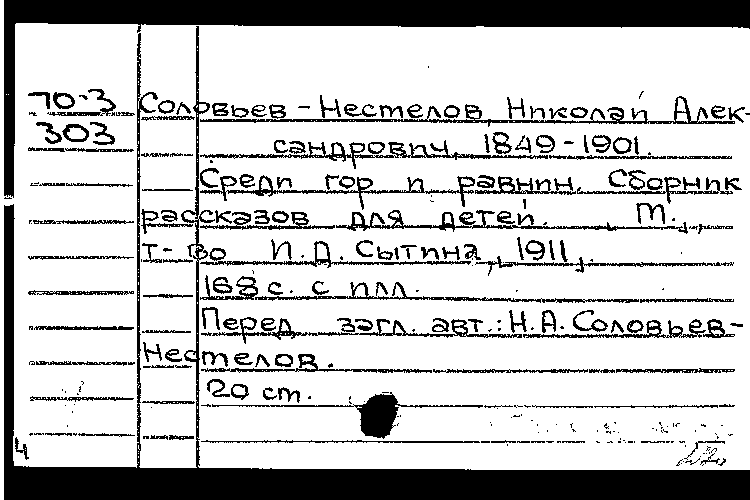 70-3 Соловьев-Нестелов, Николай Алек-
303 сандрович, 1849-1901.
Среди гор и равнин. Сборник
рассказов для детей. М.,
т-во И.Д. Сытина, [1911].
168 с. с илл.
Перед загл. авт.: Н.А. Соловьев-
Нестелов.
20 ст.
4